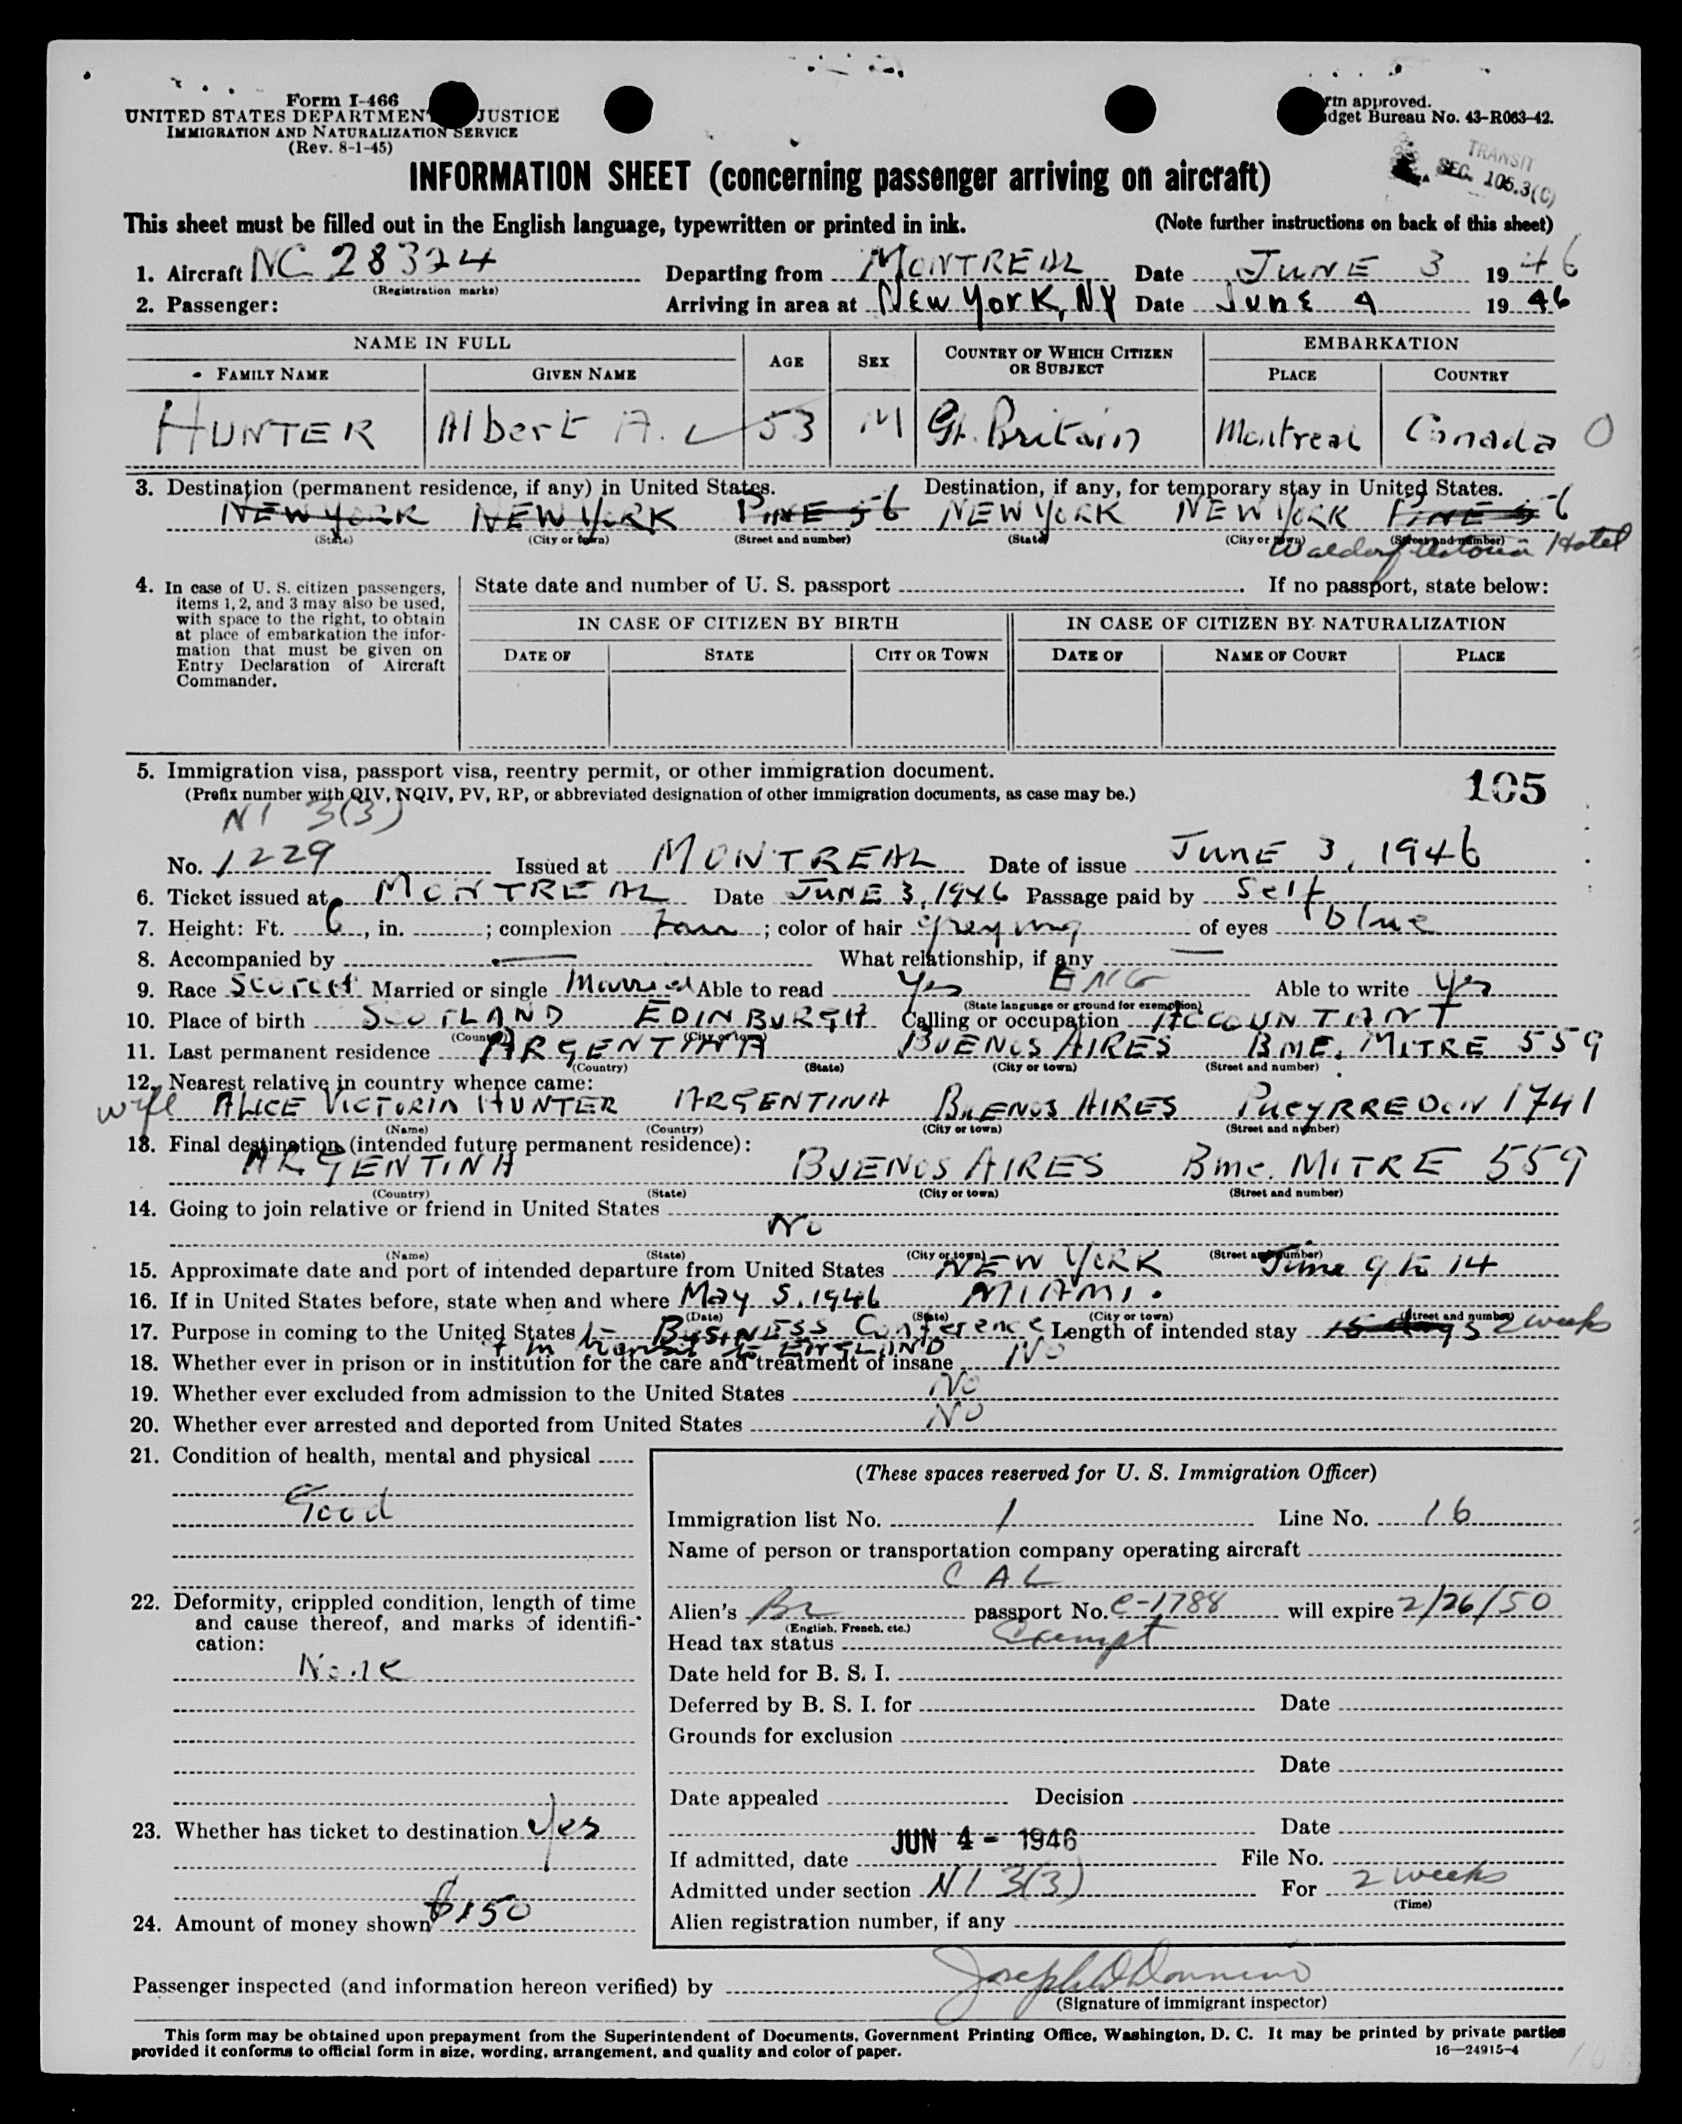 Form I-466
UNITED STATES DEPARTMEN JUSTICE
IMMIGRATION AND NATURALIZATION SERVICE
(Rev. 8-1-45)
rm approved.
dget Bureau No. 43-R063-42.
TRANSIT
SEC. 105.3(C)
INFORMATION SHEET (concerning passenger arriving on aircraft)
This sheet must be filled out in the English language, typewritten or printed in ink. (Note further instructions on back of this sheet)
1. Aircraft NC 28324 Departing from MONTREAL Date JUNE 3 1946
(Registration marks)
2. Passenger: Arriving in area at New York, NY Date June 4 1946
NAME IN FULL AGE SEX COUNTRY OF WHICH CITIZEN OR SUBJECT EMBARKATION
FAMILY NAME GIVEN NAME PLACE COUNTRY
HUNTER Albert A. 53 M Gt. Britain Montreal Canada O
3. Destination (permanent residence, if any) in United States. Destination, if any, for temporary stay in United States.
NEW YORK NEW YORK PINE 56 NEW YORK NEW YORK PINE 56
(State) (City or town) (Street and number) (State) (City or town) (Street and number)
Waldorf Astoria Hotel
4. In case of U. S. citizen passengers, items 1, 2, and 3 may also be used, with space to the right, to obtain at place of embarkation the information that must be given on Entry Declaration of Aircraft Commander.
State date and number of U. S. passport . If no passport, state below:
IN CASE OF CITIZEN BY BIRTH IN CASE OF CITIZEN BY NATURALIZATION
DATE OF STATE CITY OR TOWN DATE OF NAME OF COURT PLACE
5. Immigration visa, passport visa, reentry permit, or other immigration document. 105
(Prefix number with QIV, NQIV, PV, RP, or abbreviated designation of other immigration documents, as case may be.)
NI 3(3)
No. 1229 Issued at MONTREAL Date of issue JUNE 3, 1946
6. Ticket issued at MONTREAL Date JUNE 3, 1946 Passage paid by Self
7. Height: Ft. 6, in. ; complexion Fair ; color of hair greying of eyes blue
8. Accompanied by — What relationship, if any —
9. Race SCOTCH Married or single Married Able to read Yes ENG Able to write Yes
(State language or ground for exemption)
10. Place of birth SCOTLAND EDINBURGH Calling or occupation ACCOUNTANT
(Country) (City or town)
11. Last permanent residence ARGENTINA BUENOS AIRES BME. MITRE 559
(Country) (State) (City or town) (Street and number)
12. Nearest relative in country whence came:
wife ALICE VICTORIA HUNTER ARGENTINA BUENOS AIRES PUEYRREDON 1741
(Name) (Country) (City or town) (Street and number)
13. Final destination (intended future permanent residence):
ARGENTINA BUENOS AIRES Bme. MITRE 559
(Country) (State) (City or town) (Street and number)
14. Going to join relative or friend in United States
No
(Name) (State) (City or town) (Street and number)
15. Approximate date and port of intended departure from United States NEW YORK June 9 to 14
16. If in United States before, state when and where May 5, 1946 MIAMI.
(Date) (State) (City or town) (Street and number)
17. Purpose in coming to the United States BUSINESS Conference Length of intended stay 15 days 2 weeks
+ in transit to ENGLAND
18. Whether ever in prison or in institution for the care and treatment of insane No
19. Whether ever excluded from admission to the United States No
20. Whether ever arrested and deported from United States No
21. Condition of health, mental and physical
Good
22. Deformity, crippled condition, length of time and cause thereof, and marks of identification:
None
23. Whether has ticket to destination Yes
24. Amount of money shown $150
(These spaces reserved for U. S. Immigration Officer)
Immigration list No. 1 Line No. 16
Name of person or transportation company operating aircraft
CAL
Alien's Br passport No. C-1788 will expire 2/26/50
(English, French, etc.)
Head tax status Exempt
Date held for B. S. I.
Deferred by B. S. I. for Date
Grounds for exclusion
Date
Date appealed Decision
Date
If admitted, date JUN 4 - 1946 File No.
Admitted under section NI 3(3) For 2 weeks
(Time)
Alien registration number, if any
Passenger inspected (and information hereon verified) by
(Signature of immigrant inspector)
This form may be obtained upon prepayment from the Superintendent of Documents, Government Printing Office, Washington, D. C. It may be printed by private parties
provided it conforms to official form in size, wording, arrangement, and quality and color of paper.
16—24915-4